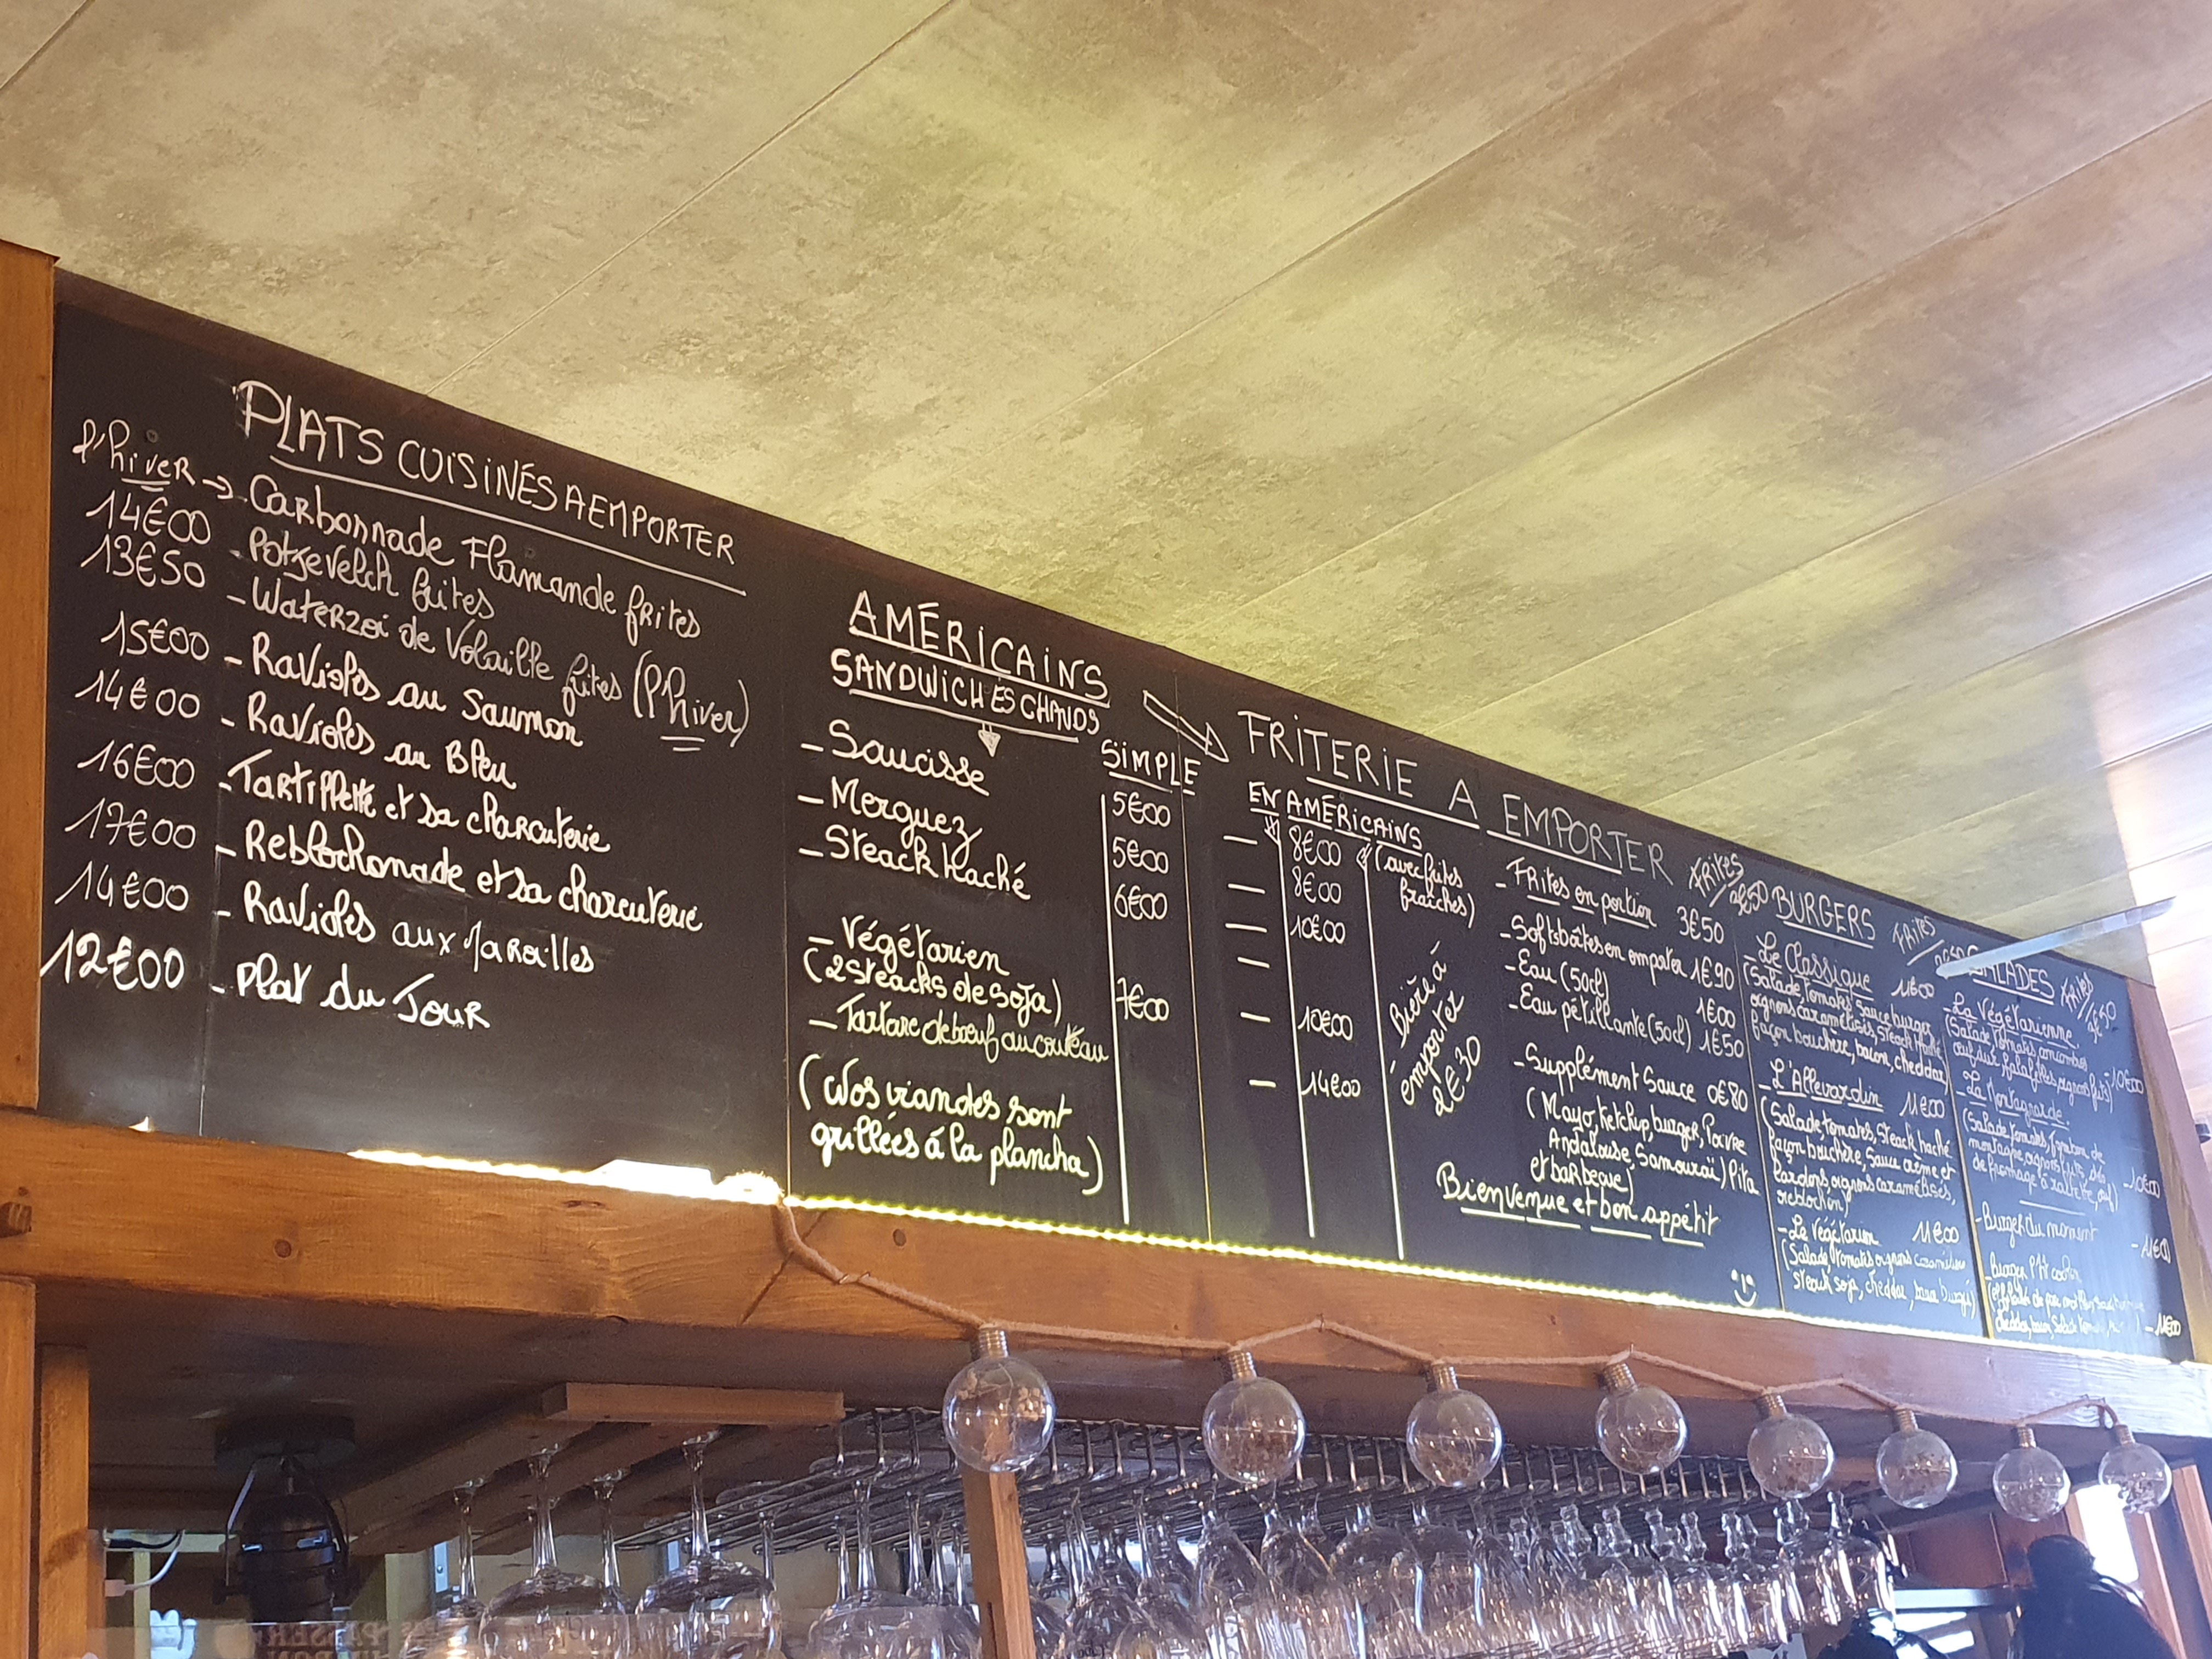 PLATS CUISINÉS A EMPORTER
l'hiver → - Carbonnade Flamande frites
14€00 - Potjevelch frites
13€50 - Waterzoi de Volaille frites (l'hiver)
15€00 - Ravioles au Saumon
14€00 - Ravioles au Bleu
16€00 - Tartiflette et sa charcuterie
17€00 - Reblochonade et sa charcuterie
14€00 - Ravioles aux Maroilles
12€00 - Plat du Jour
AMÉRICAINS
SANDWICHES CHAUDS
SIMPLE
- Saucisse 5€00
- Merguez 5€00
- Steack haché 6€00
- Végétarien
(2 steacks de soja) 7€00
- Tartare de bœuf au couteau
(Nos viandes sont
grillées à la plancha)
FRITERIE A EMPORTER
EN AMÉRICAINS
— 8€00 (avec frites
— 8€00 fraîches)
— 10€00
—
— 10€00
— 14€00
- Bière à
emporter
2€30
- Frites en portion 3€50
- Softs boîtes en emporter 1€90
- Eau (50cl) 1€00
- Eau pétillante (50cl) 1€50
- Supplément Sauce 0€80
(Mayo, ketchup, burger, Poivre
Andalouse, Samouraï, Pita
et barbecue)
Bienvenue et bon appétit
Frites
BURGERS
- Le Classique 11€00
(Salade tomates, sauce burger
oignons caramélisés, steack haché
façon bouchère, bacon, cheddar)
- L'Allevardin 11€00
(Salade, tomates, steack haché
façon bouchère, sauce crème et
lardons oignons caramélisés,
reblochon)
- Le Végétarien 11€00
(Salade, tomates oignons caramélisés
steack soja, cheddar, sauce burger)
Frites
SALADES
Frites
- La Végétarienne
(Salade, tomates, concombres
œuf dur, falafelles, oignons frits) 10€00
- La Montagnarde
(Salade, tomates, jambon de
montagne, oignons frits, dés
de fromage à raclette, œuf) - 10€00
- Burger du moment - 11€00
Burger
cheddar, bacon, Salade - 11€00